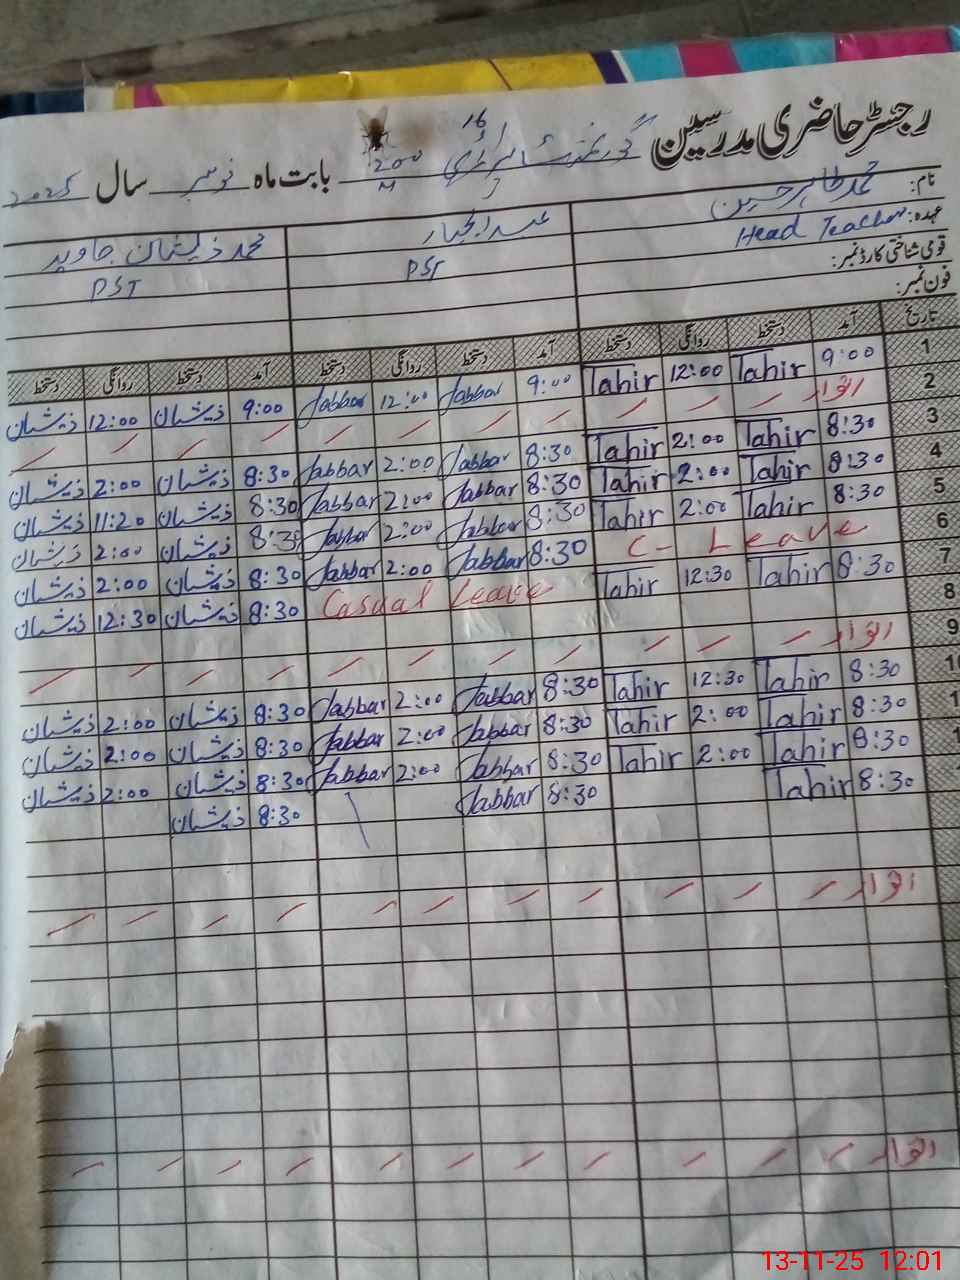 رجسٹر حاضری مدرسین گورنمنٹ پرائمری 16 200 M بابت ماہ نومبر سال 2025
نام: محمد طاہر حسین عبدالجبار محمد ذیشان جاوید
عہدہ: Head Teacher PST PST
قومی شناختی کارڈ نمبر:
فون نمبر:
تاریخ آمد دستخط روانگی دستخط آمد دستخط روانگی دستخط آمد دستخط روانگی دستخط
1 9:00 Tahir 12:00 Tahir 9:00 Jabbar 12:00 Jabbar 9:00 ذیشان 12:00 ذیشان
2 اتوار
3 8:30 Tahir 2:00 Tahir 8:30 Jabbar 2:00 Jabbar 8:30 ذیشان 2:00 ذیشان
4 8:30 Tahir 2:00 Tahir 8:30 Jabbar 2:00 Jabbar 8:30 ذیشان 11:20 ذیشان
5 8:30 Tahir 2:00 Tahir 8:30 Jabbar 2:00 Jabbar 8:30 ذیشان 2:00 ذیشان
6 C- Leave 8:30 Jabbar 2:00 Jabbar 8:30 ذیشان 2:00 ذیشان
7 8:30 Tahir 12:30 Tahir Casual Leave 8:30 ذیشان 12:30 ذیشان
8
9 اتوار
10 8:30 Tahir 12:30 Tahir 8:30 Jabbar 2:00 Jabbar 8:30 ذیشان 2:00 ذیشان
1 8:30 Tahir 2:00 Tahir 8:30 Jabbar 2:00 Jabbar 8:30 ذیشان 2:00 ذیشان
1 8:30 Tahir 2:00 Tahir 8:30 Jabbar 2:00 Jabbar 8:30 ذیشان 2:00 ذیشان
8:30 Tahir 8:30 Jabbar 8:30 ذیشان
اتوار
اتوار
13-11-25 12:01